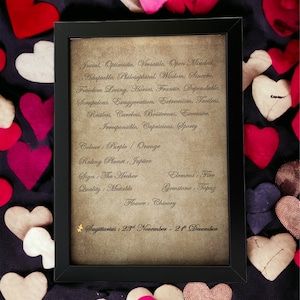 Jovial, Optimistic, Versatile, Open Minded,
Adaptable, Philosophical, Wisdom, Sincere,
Freedom Loving, Honest, Fanatic, Dependable,
Scrupulous, Exaggeration, Extremism, Tactless,
Restless, Careless, Boisterous, Excessive,
Irresponsible, Capricious, Sporty
Colour : Purple / Orange
Ruling Planet : Jupiter
Sign : The Archer Element : Fire
Quality : Mutable Gemstone : Topaz
Flower : Chicory
Sagittarius : 23rd November - 21st December